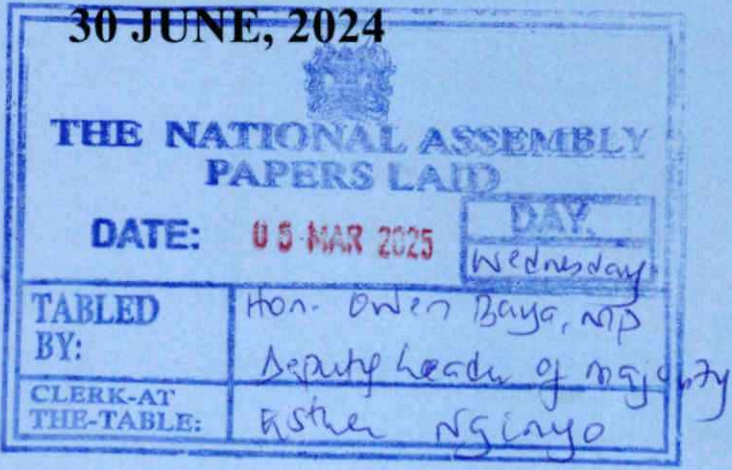 30 JUNE, 2024
THE NATIONAL ASSEMBLY
PAPERS LAID
DATE: 05 MAR 2025
DAY.
Wednesday
TABLED BY:
Hon. Owen Baya, MP
Deputy Leader of Majority
CLERK-AT THE-TABLE:
Esther Nginyo